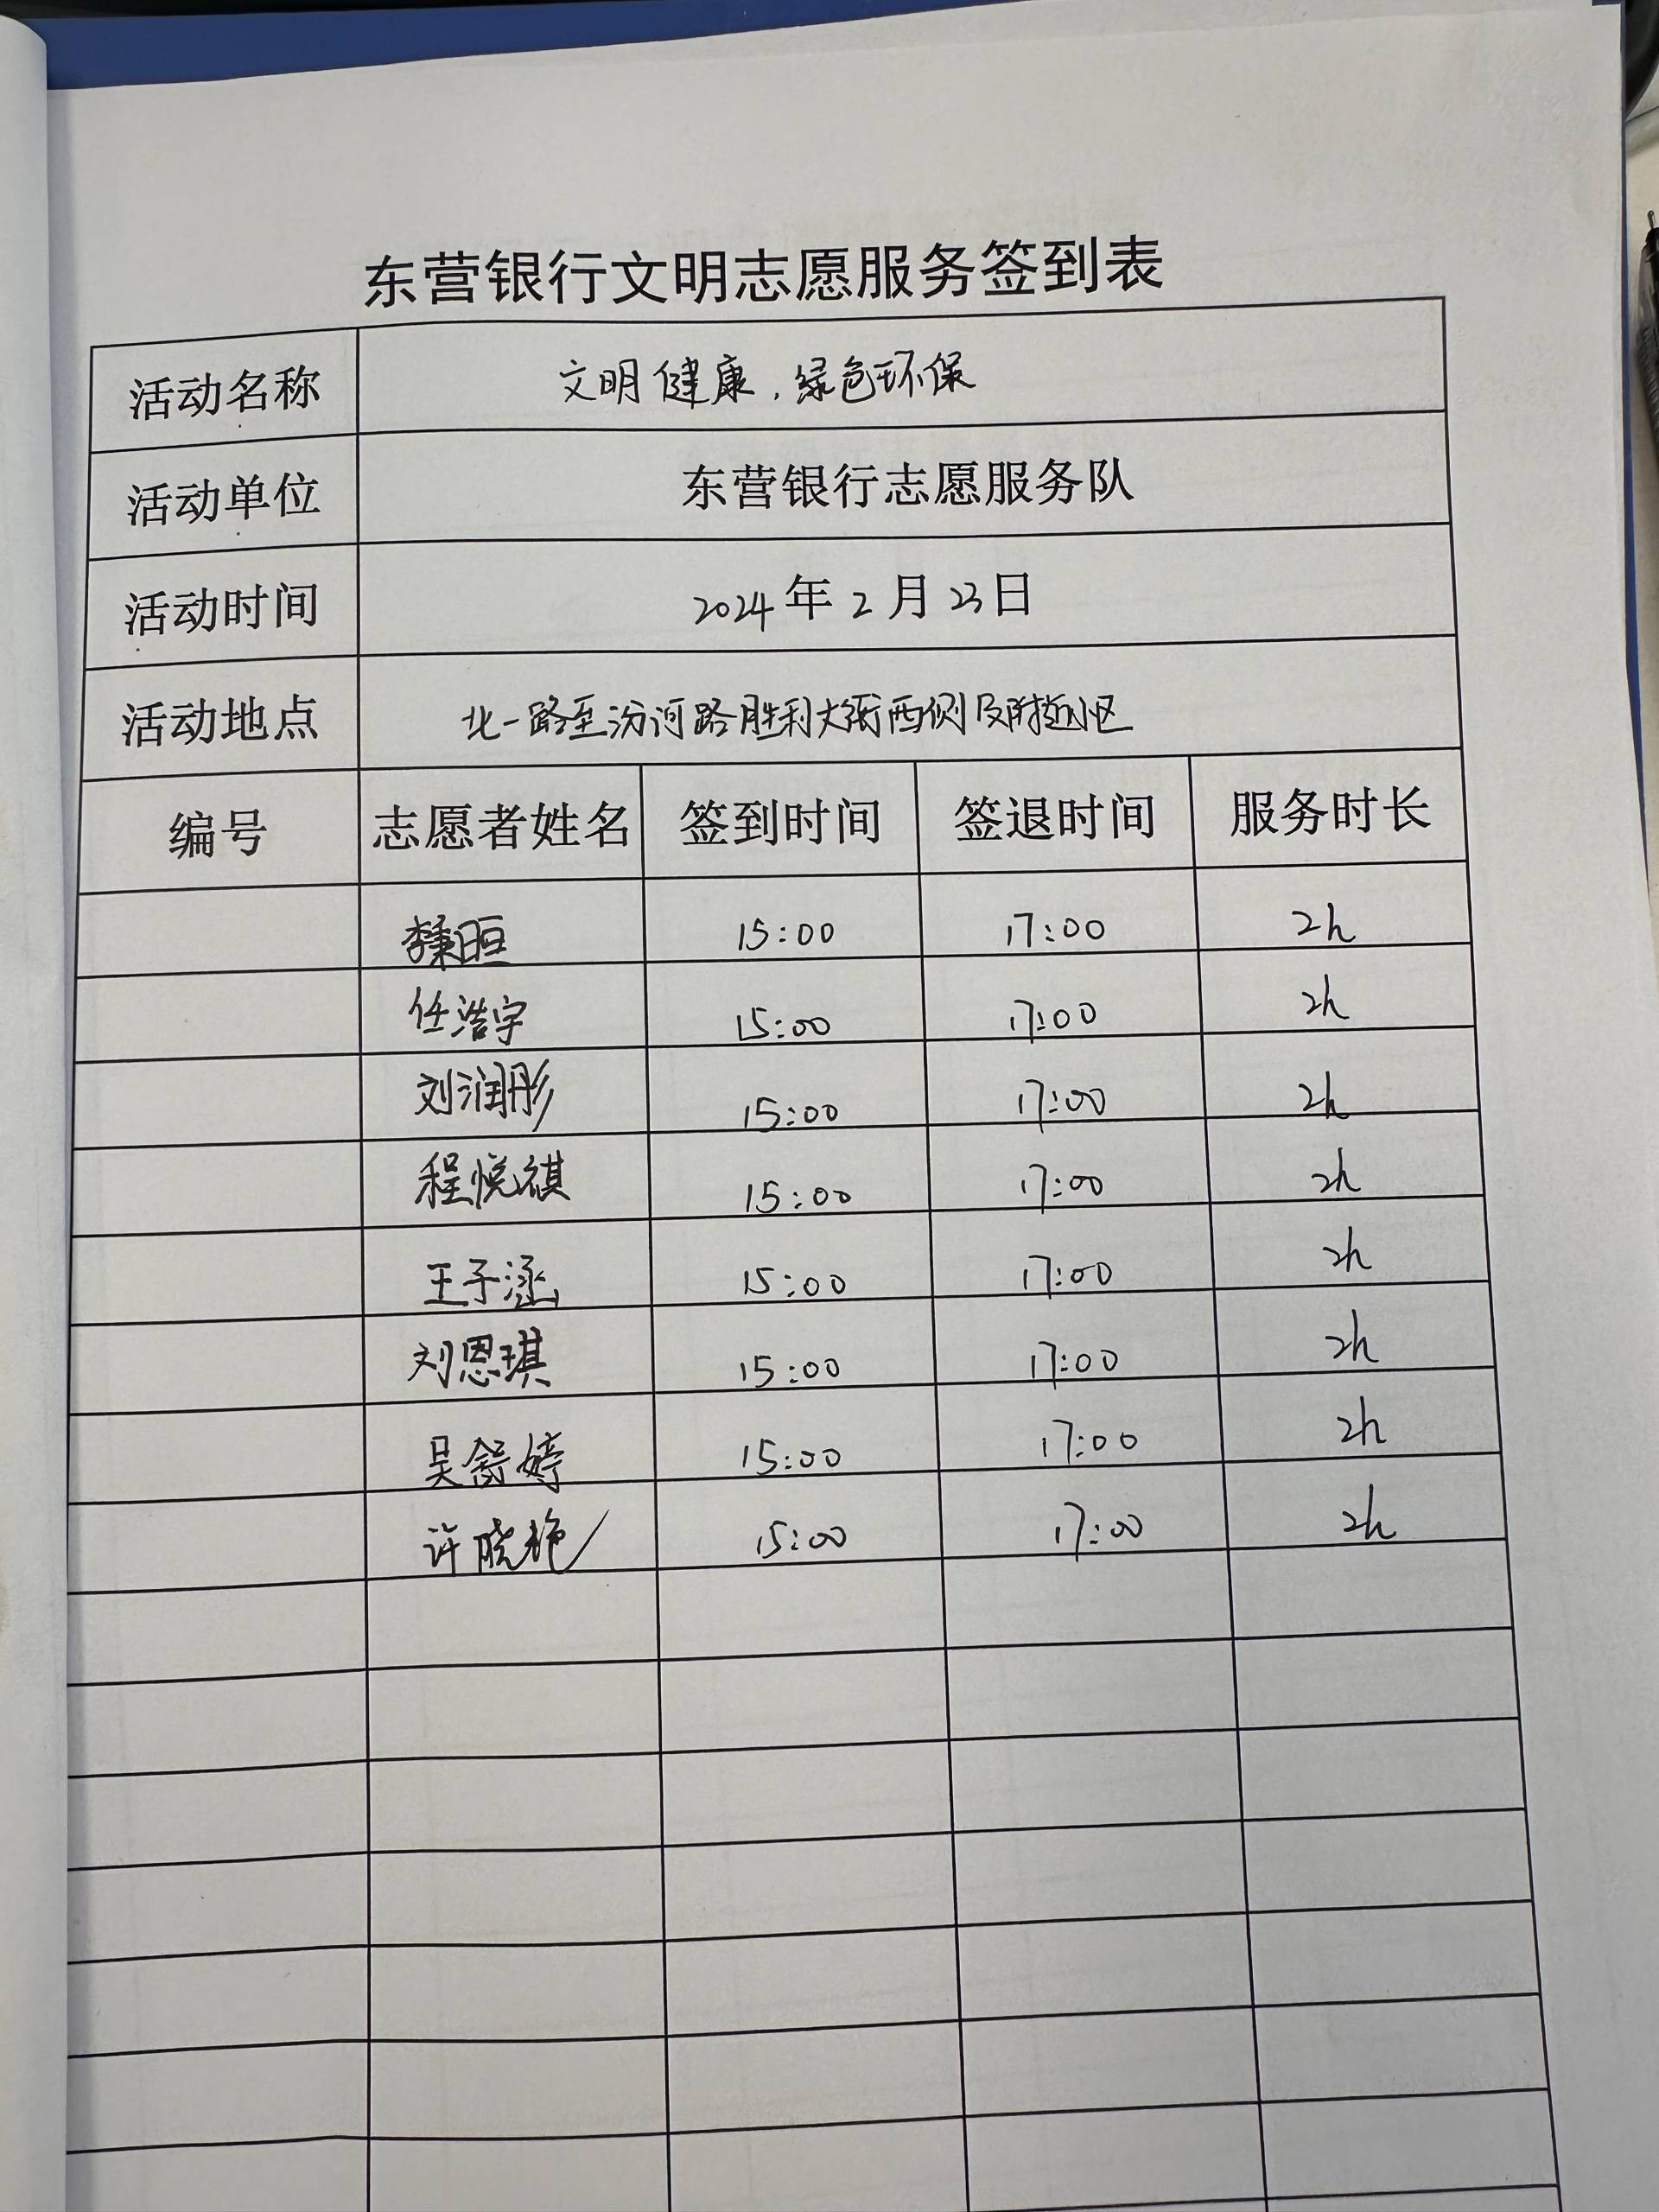 东营银行文明志愿服务签到表
活动名称 文明健康，绿色环保
活动单位 东营银行志愿服务队
活动时间 2024年2月23日
活动地点 北一路至汾河路胜利大街西侧及附近小区
编号 志愿者姓名 签到时间 签退时间 服务时长
李秉晅 15:00 17:00 2h
任浩宇 15:00 17:00 2h
刘润彤 15:00 17:00 2h
程悦祺 15:00 17:00 2h
王子涵 15:00 17:00 2h
刘恩琪 15:00 17:00 2h
吴舒婷 15:00 17:00 2h
许晓艳 15:00 17:00 2h